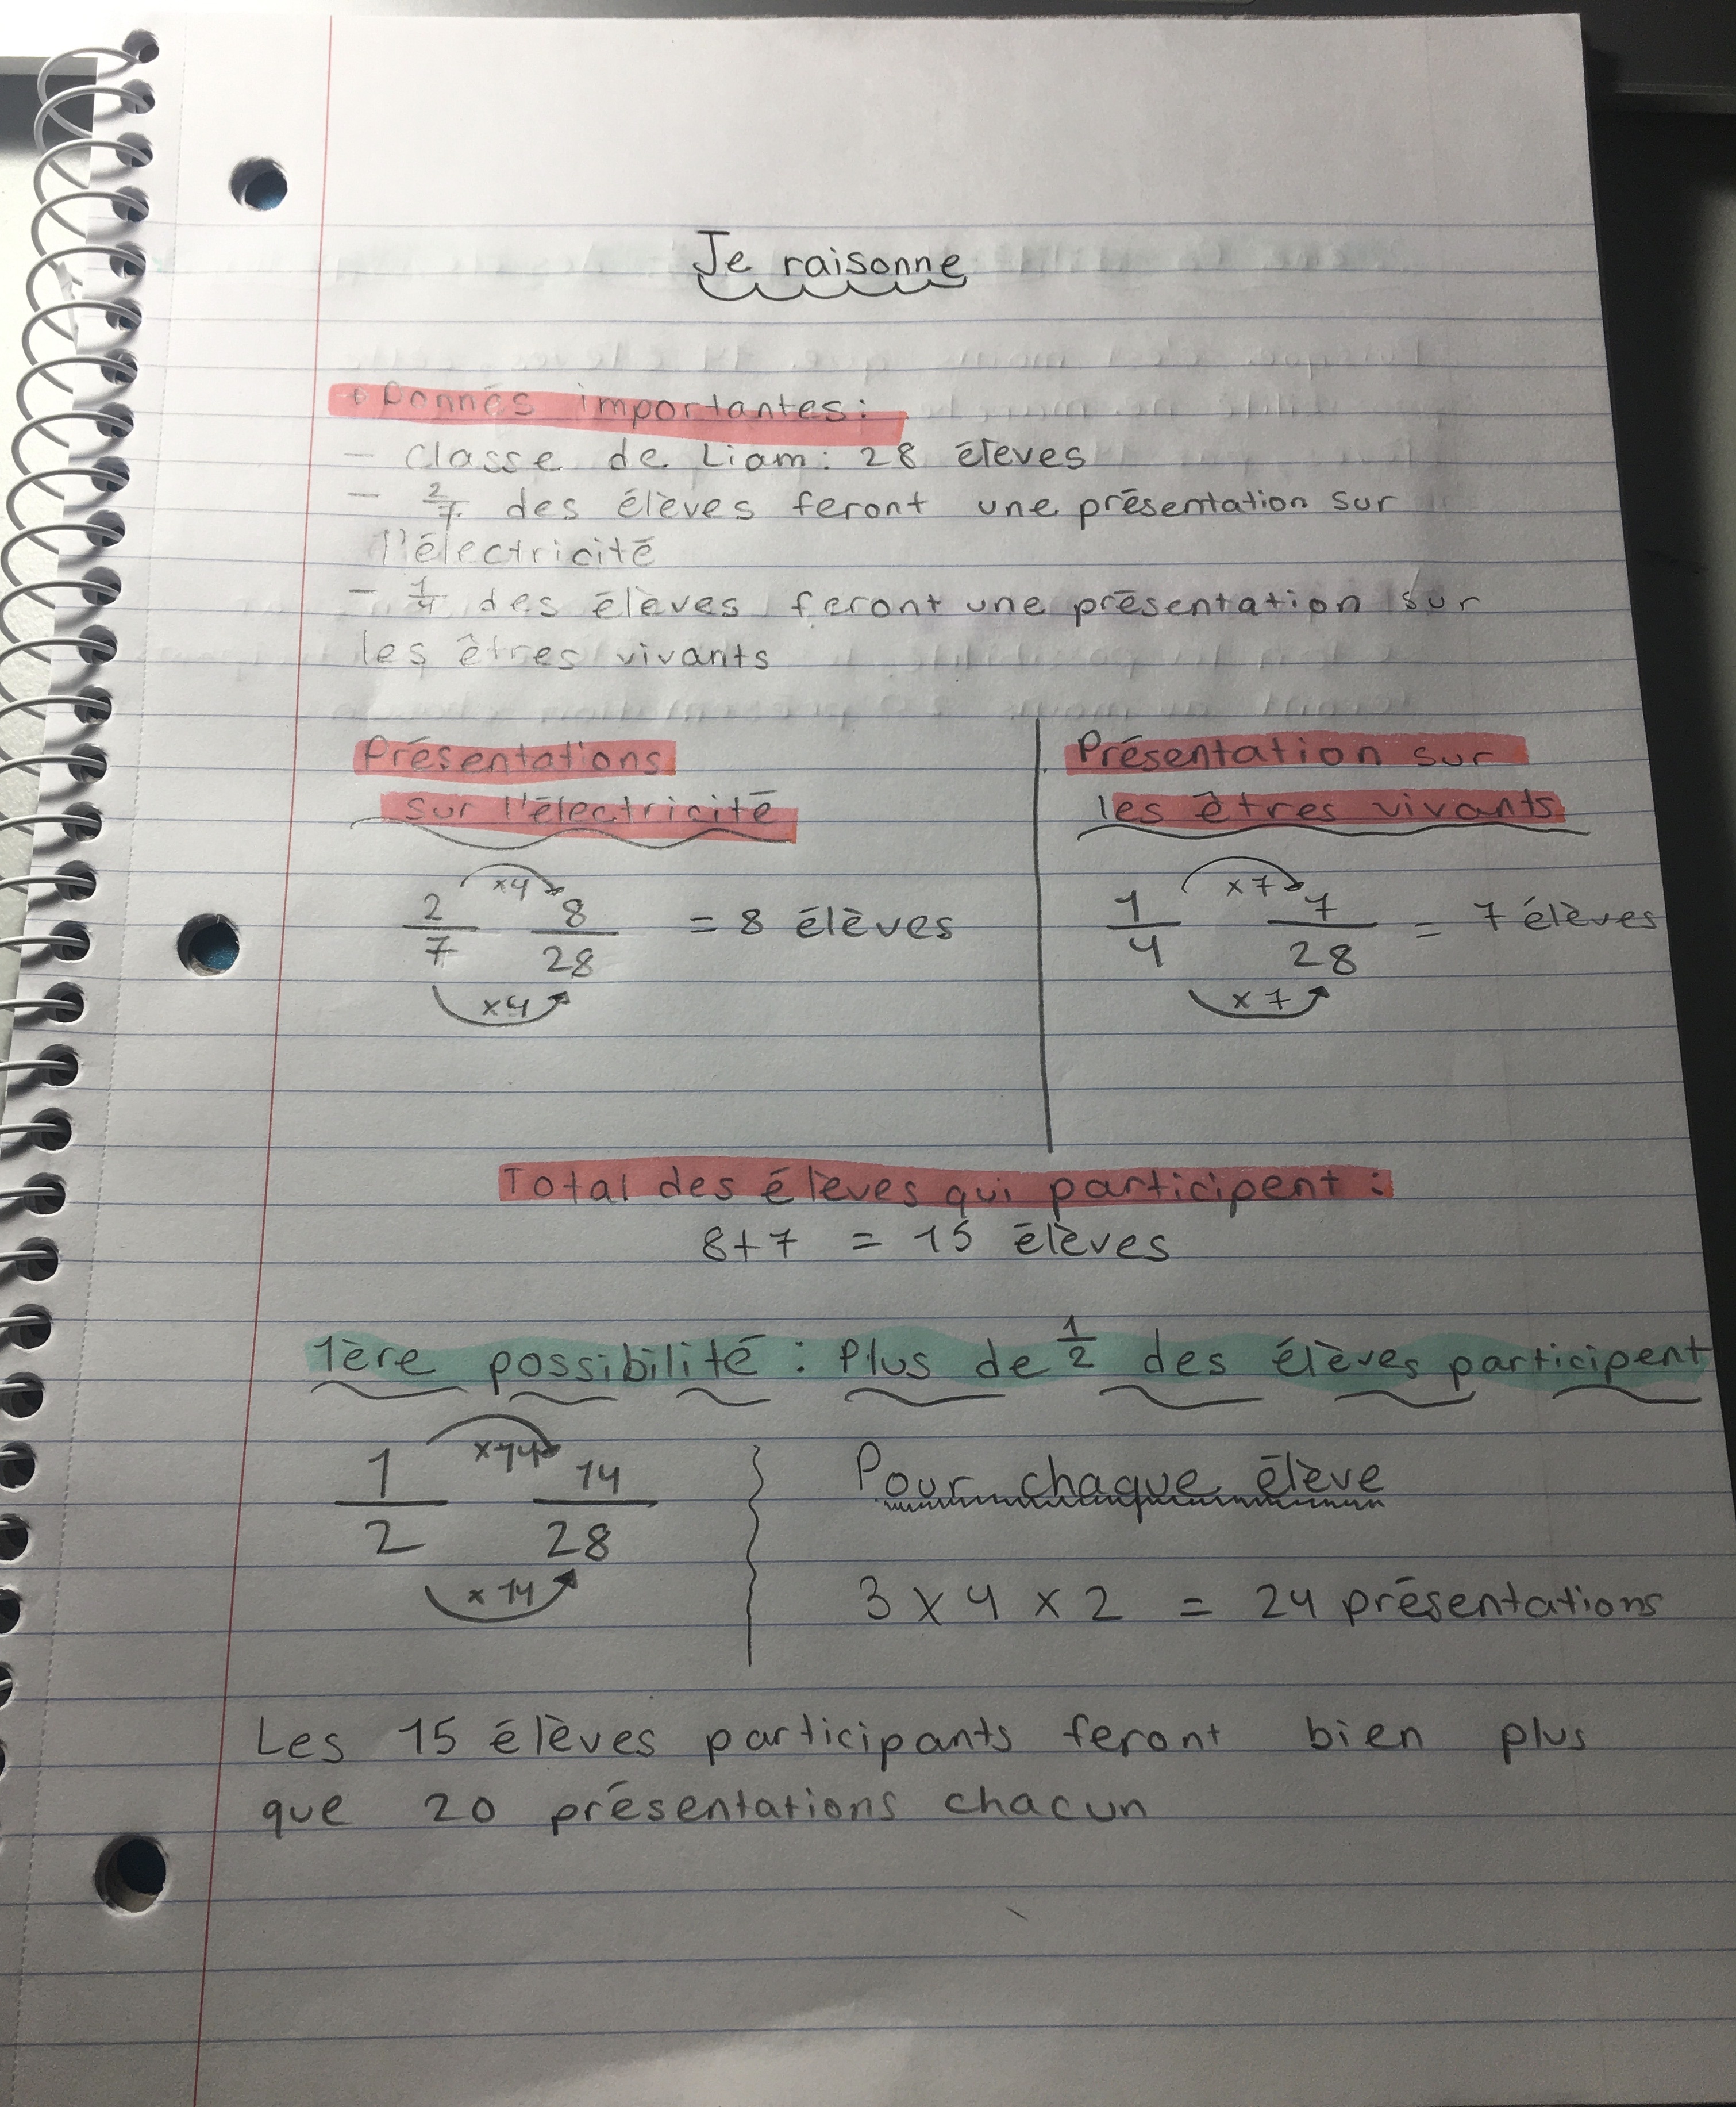 Je raisonne
Donnés importantes:
- Classe de Liam: 28 élèves
- 2/7 des élèves feront une présentation sur
l'électricité
- 1/4 des élèves feront une présentation sur
les êtres vivants
Présentations
sur l'électricité
2/7 8/28 = 8 élèves
×4
×4
Présentation sur
les êtres vivants
1/4 7/28 = 7 élèves
×7
×7
Total des élèves qui participent:
8+7 = 15 élèves
1ère possibilité: Plus de 1/2 des élèves participent
1/2 14/28
×14
×14
Pour chaque élève
3 × 4 × 2 = 24 présentations
Les 15 élèves participants feront bien plus
que 20 présentations chacun